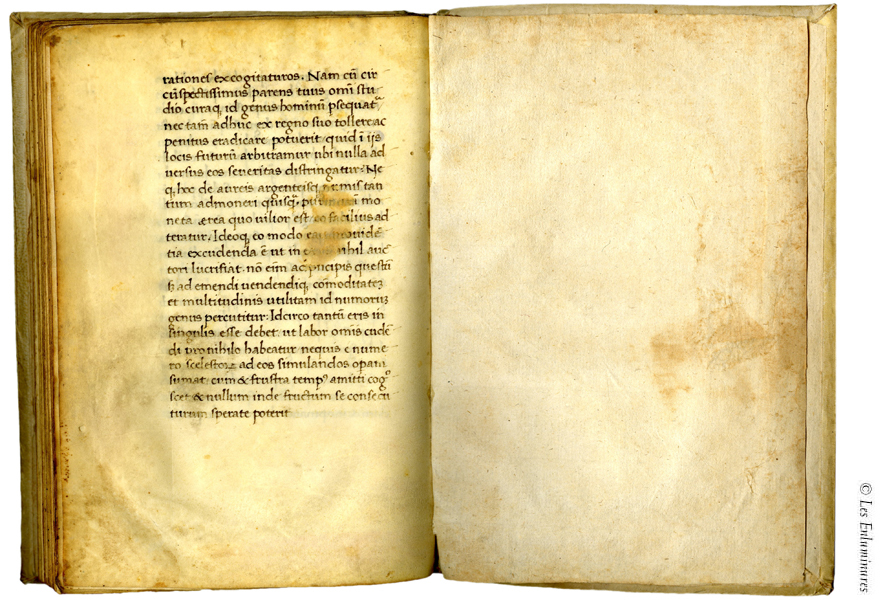 rationes excogitaturos. Nam cū cir
cūspectissimus parens tuus omī stu
dio curaq, id genus hominū psequat
nec tam̄ adhuc ex regno suo tollere ac
penitus eradicare potuerit quid ī ijs
locis futurū arbitramur ubi nulla ad
uersus eos seueritas distringatur: Ne
q, hoc de aureis argenteisq, tan
tum admoneri quisq̄. mo
neta ærea quo uilior est eo facilius ad
teratur. Ideoq, eo modo
tia excudenda ē ut in nihil auc
tori lucrifiat. nō eim ad pncipis questū
ſʒ ad emendi uendendiq, cōmoditatē
et multitudinis utilitatem id numorum
genus percutitur: Idcirco tantū eris in
singulis esse debet. ut labor omīs cudē
di pro nihilo habeatur nequis e nume
ro scelestoꝝ ad eos simulandos opam
sumat. cum & frustra tempꝰ amitti cog
scet & nullum inde fructum se consecu
turum sperare poterit
© Les Enluminures